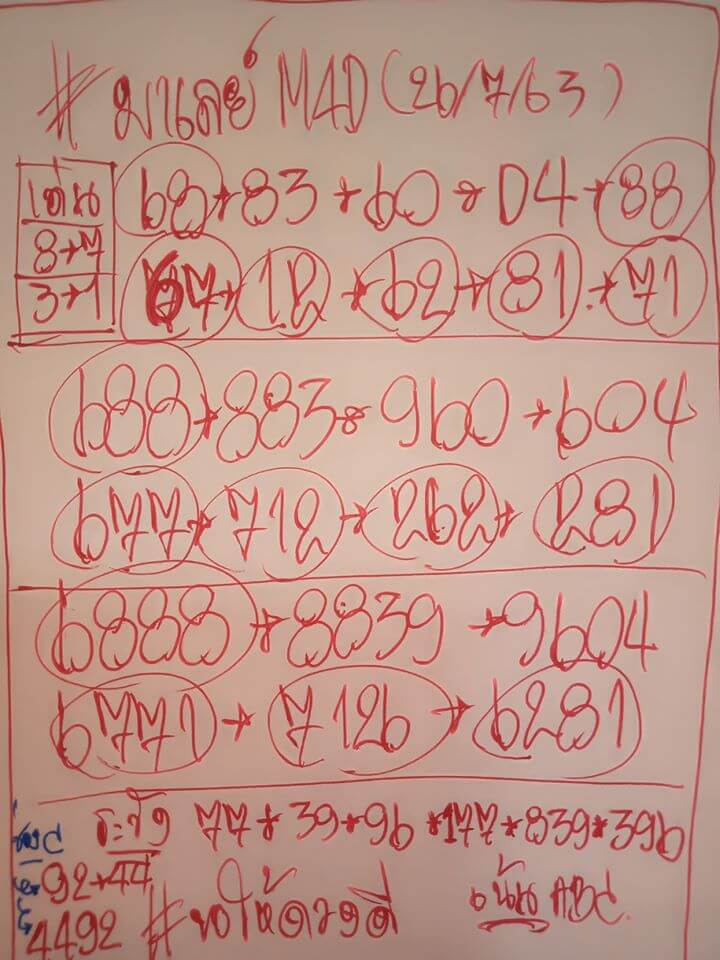 # มาเลย์ M4D (26/7/63)
เด่น 68+83+60+04+88
8+7
3+1 67+12+62+81+71
688+883+960+604
677+712+262+281
6888+8839+9604
6771+7126+6281
ระวัง 77+39+96+177+839+396
92+44
4492 #ขอให้ดวงดี เน้น ABC.